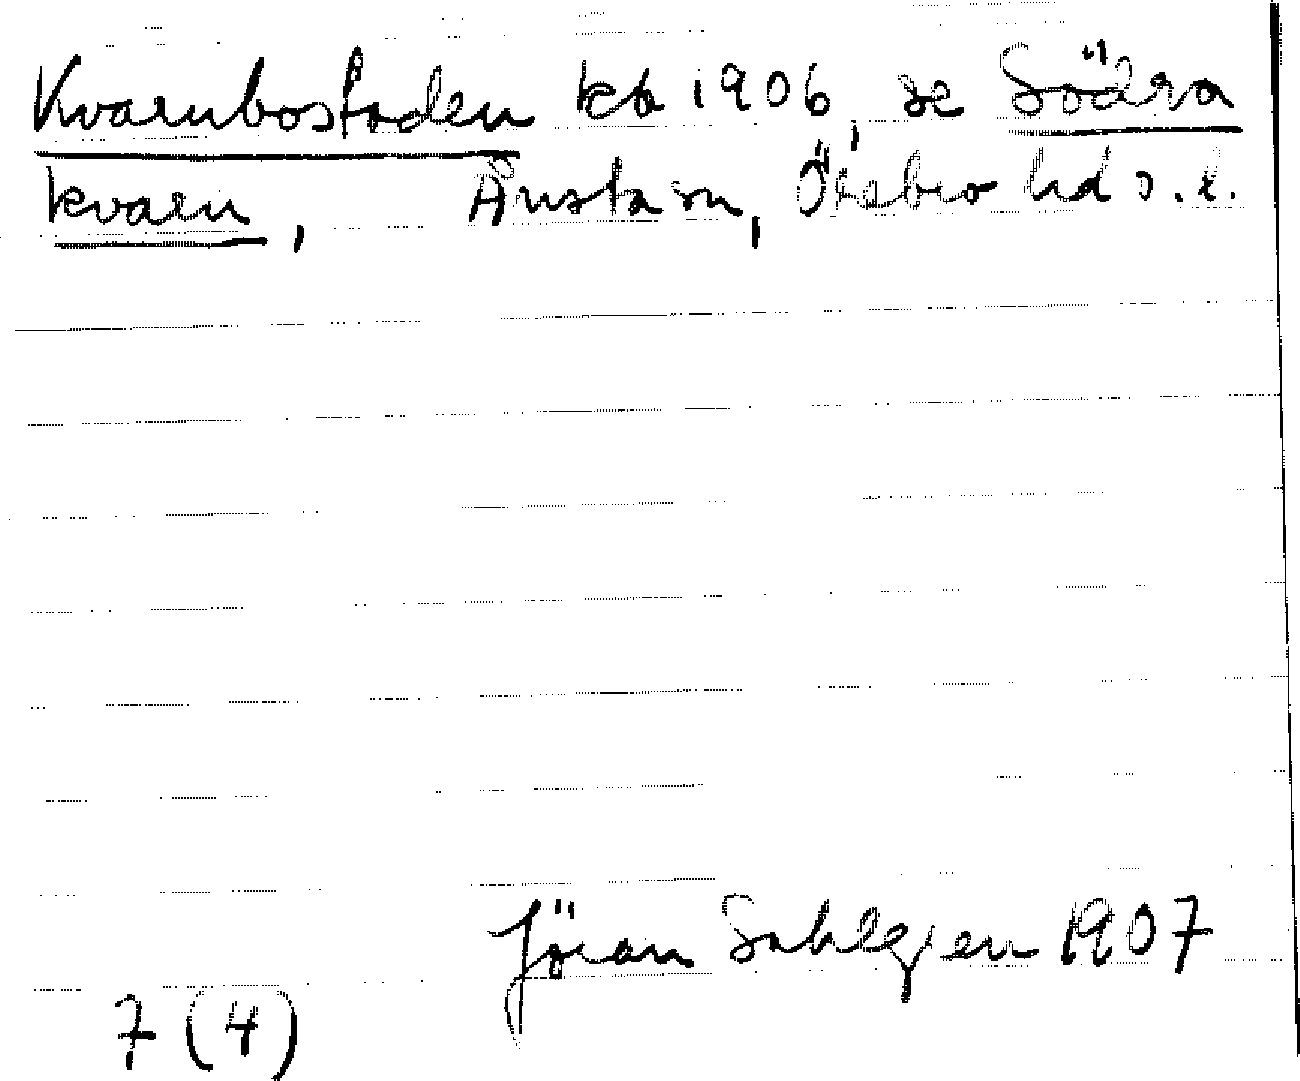 Kvarnbostaden kb 1906, se Södra
kvarn, Ånsta sn, Örebro hd o. l.
Jöran Sahlgren 1907
7 (4)